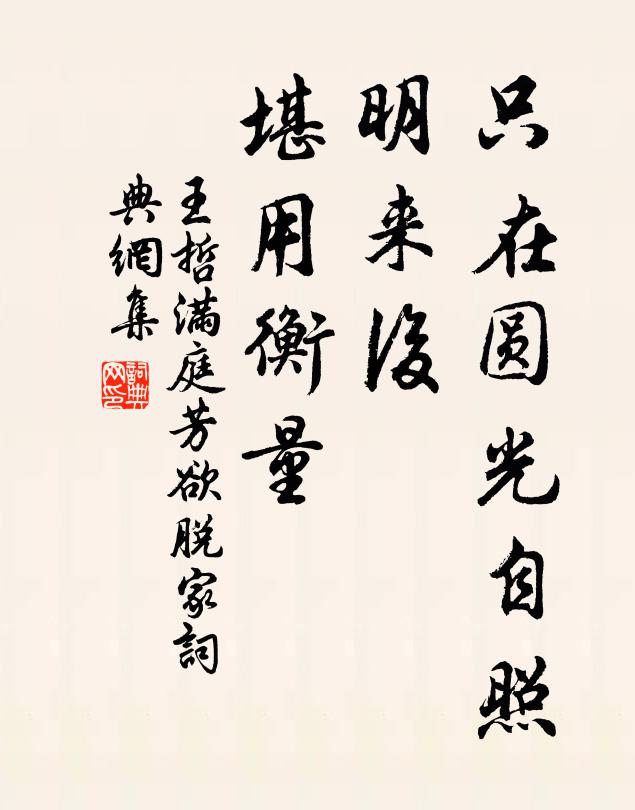 只在圓光自照
明来後
堪用衡量
王哲满庭芳欲脱家詞
典網集
詞典网印